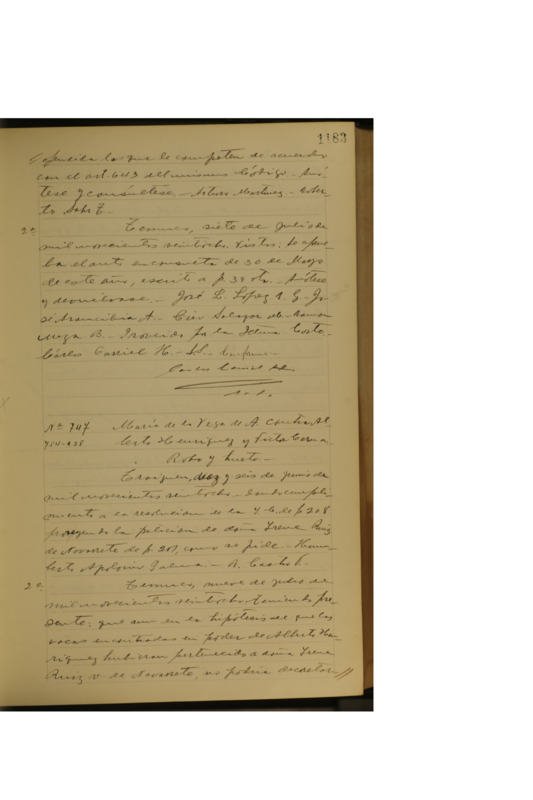 1183
ofendida las que le competen de acuerdo
con el art. 643 del mismo Código. Anó-
tese y consúltese. - Arturo Martínez -
to Soto Z.
2a Temuco, siete de julio de
mil novecientos veintiocho. Vistos: Se aprue-
ba el auto en consulta de 30 de Mayo
de este año, escrito a f. 39 vta. - Anótese
y devuélvase. - José L. López A. G. - Jo-
sé Arancibia A. - Ciro Salazar M. - Ramon
Meza B. - Proveido por la Iltma. Corte -
Cárlos Carriel H. - S.S. - Conforme -
Carlos Carriel H.
Nº 747 María de la Vega de A. contra Al-
berto Henriquez y Victor Cerna.
Robo y hurto -
Traiguen, diez y seis de junio de
mil novecientos veintiocho. - Dando cumpli-
miento a la resolucion de la Y. C. de f. 208
proveyendo la peticion de doña Irene Ruiz
de Navarrete de f. 201, como se pide. - Hum-
berto Apolonio Palma. - R. Castro R.
2a Temuco, nueve de julio de
mil novecientos veintiocho. Teniendo pre-
sente: que aun en la hipótesis de que las
vacas encontradas en poder de Alberto Hen-
riquez hubieran pertenecido a doña Irene
Ruiz v. de Navarrete, no podria decretar //